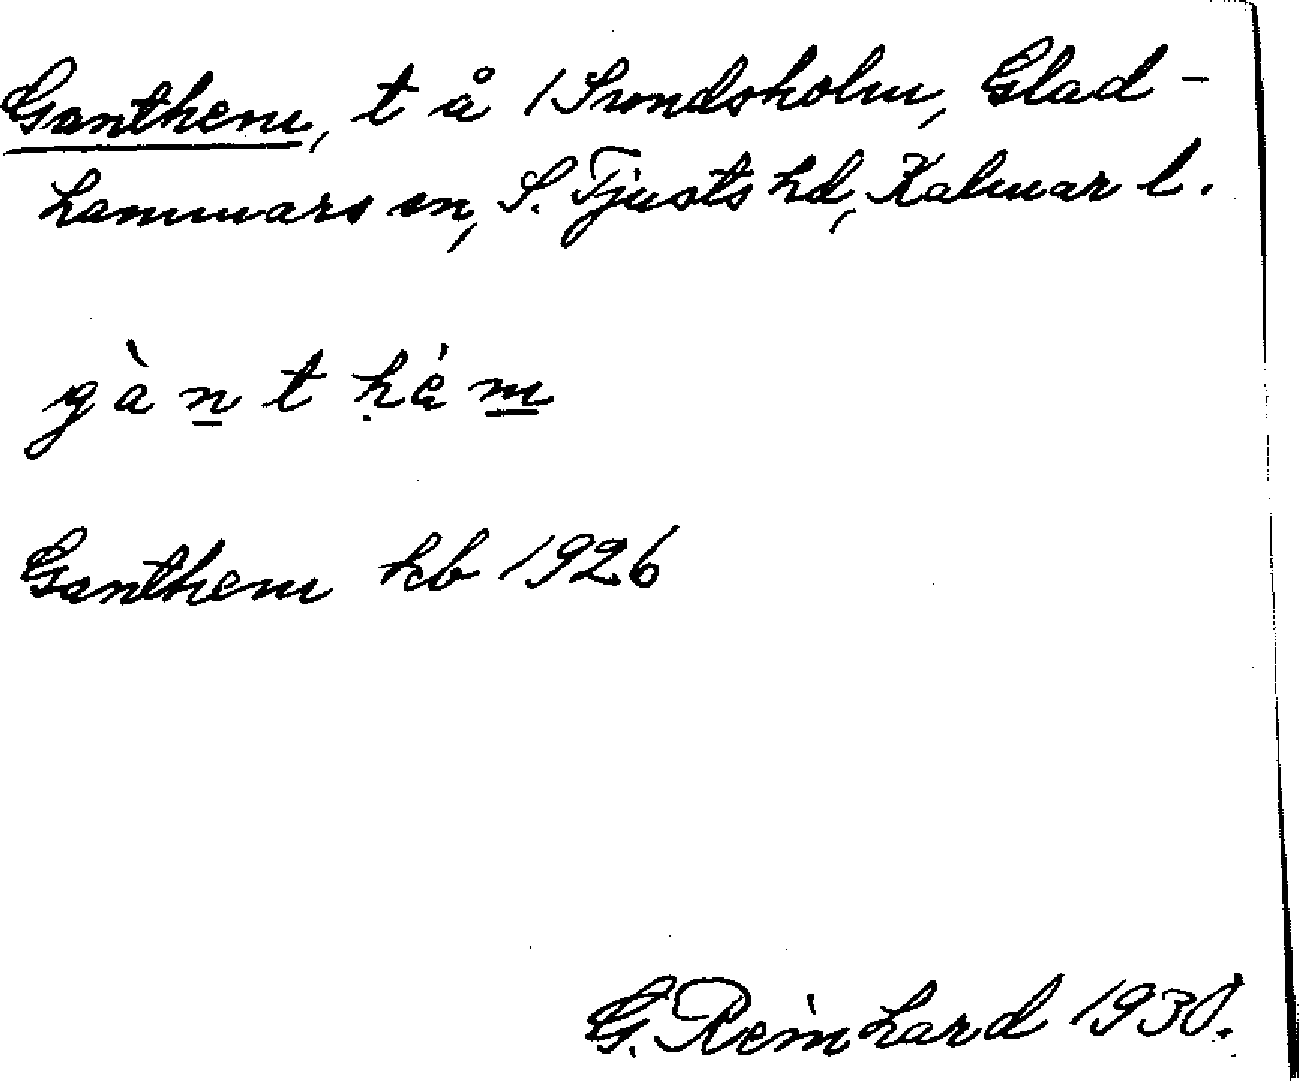 Ganthem, t å 1 Sundsholm, Glad-
hammars sn, S. Tjusts hd, Kalmar l.
gàn̲t ḥėm̲
Ganthem kb 1926
G. Reinhard 1930.